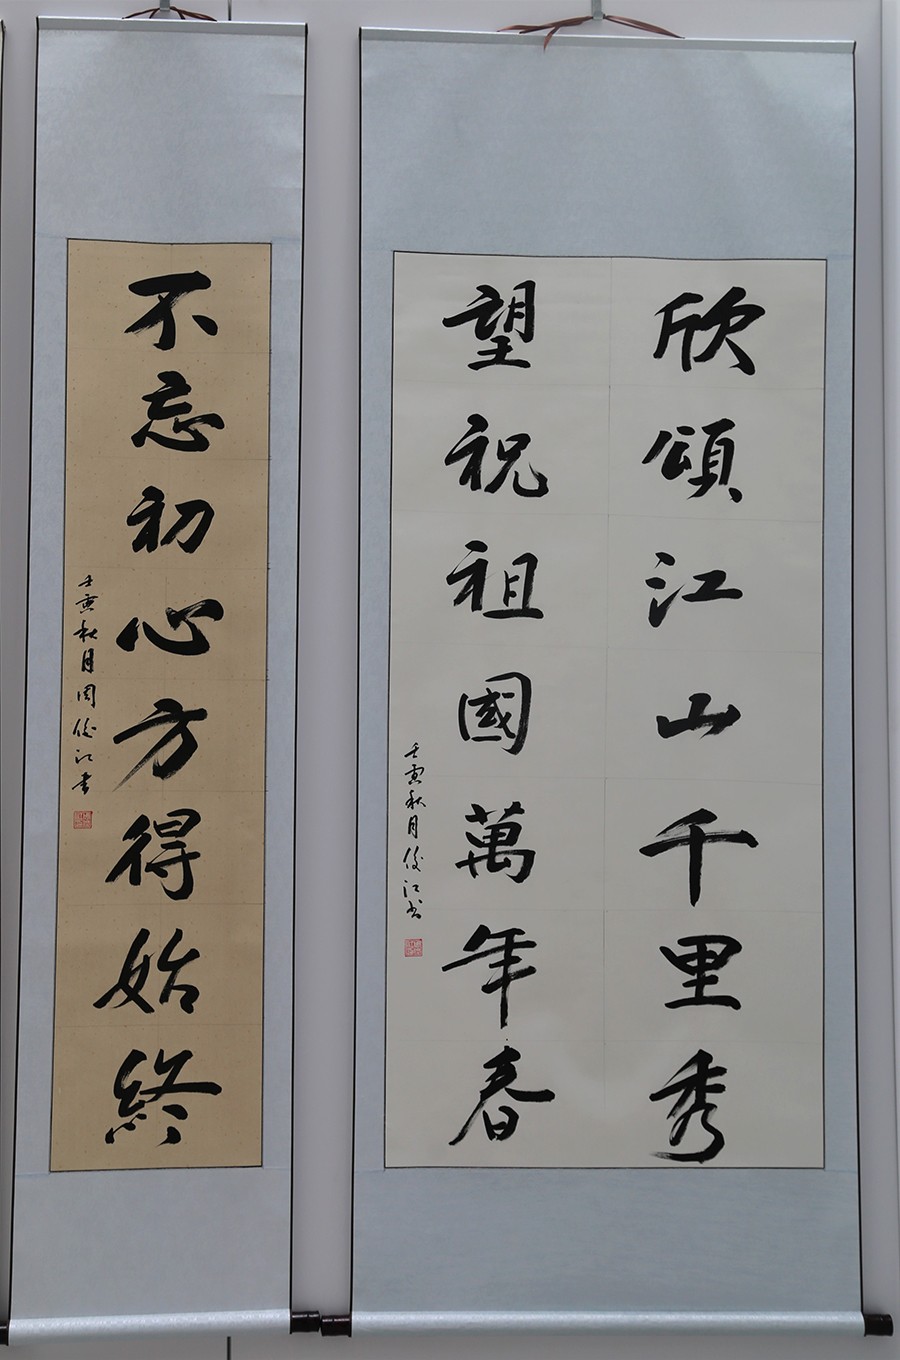 欣頌江山千里秀
望祝祖國萬年春
壬寅秋月俊江书
不忘初心方得始終
壬寅秋月周俊江書